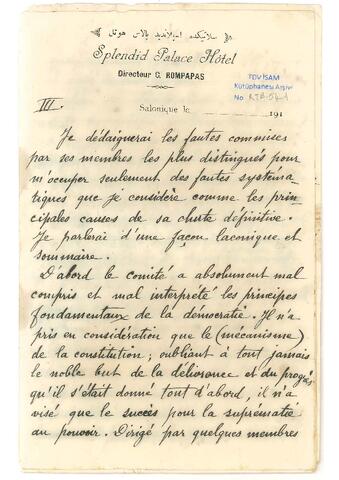 سلانیکده اسپلاندید پالاس هوتل
Splendid Palace Hôtel
Directeur C. ROMPAPAS
TDV İSAM
Kütüphanesi Arşivi
No
Salonique le 191
III.
Je dédaignerai les fautes commises
par ses membres les plus distingués pour
m'occuper seulement des fautes systéma-
tiques que je considère comme les prin-
cipales causes de sa chute définitive.
Je parlerai d'une façon laconique et
sommaire.
D'abord le comité a absolument mal
compris et mal interprété les principes
fondamentaux de la démocratie. Il n'a
pris en considération que le (mécanisme)
de la constitution; oubliant à tout jamais
le noble but de la délivrance et du progrès
qu'il s'était donné tout d'abord, il n'a
visé que le succès pour la suprématie
au pouvoir. Dirigé par quelques membres